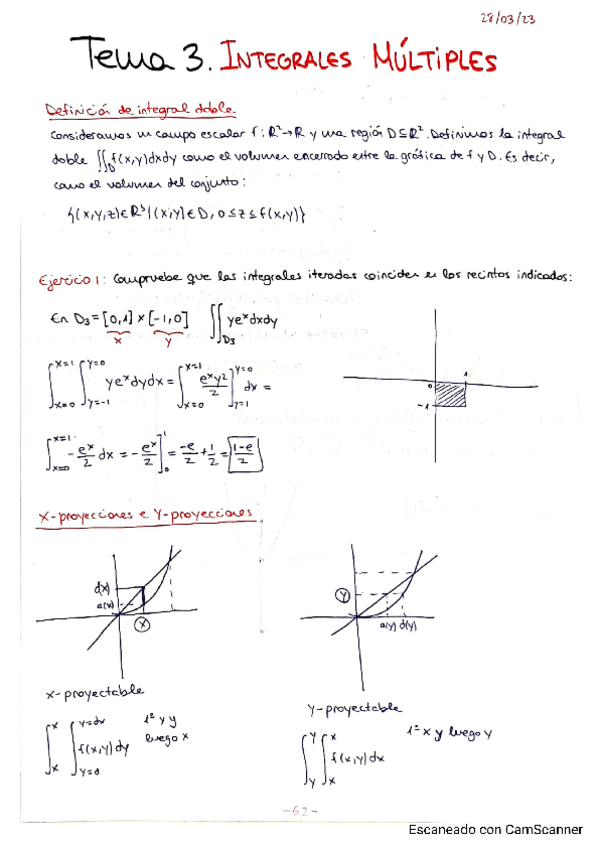 28/03/23
Tema 3. INTEGRALES MÚLTIPLES
Definición de integral doble
Consideramos un campo escalar f: ℝ²→ℝ y una región D⊆ℝ². Definimos la integral
doble ∬_D f(x,y)dxdy como el volumen encerrado entre la gráfica de f y D. Es decir,
como el volumen del conjunto:
{(x,y,z)∈ℝ³ | (x,y)∈D, 0≤z≤f(x,y)}
Ejercicio 1: Compruebe que las integrales iteradas coinciden en los recintos indicados:
En D₃=[0,1]×[-1,0] ∬_D₃ ye^x dxdy
x y
∫_{x=0}^{x=1} ∫_{y=-1}^{y=0} ye^x dydx = ∫_{x=0}^{x=1} e^x y²/2 ]_{y=1}^{y=0} dx =
∫_{x=0}^{x=1} -e^x/2 dx = -e^x/2 ]_0^1 = -e/2 + 1/2 = 1-e/2
0 1
-1
X-proyecciones e Y-proyecciones
d(x)
a(x)
X
Y
a(y) d(y)
x-proyectable
∫_x^x ∫_{y=a}^{y=dx} f(x,y)dy 1º y y
luego x
Y-proyectable
∫_y^y ∫_x^x f(x,y)dx 1º x y luego y
-62-
Escaneado con CamScanner